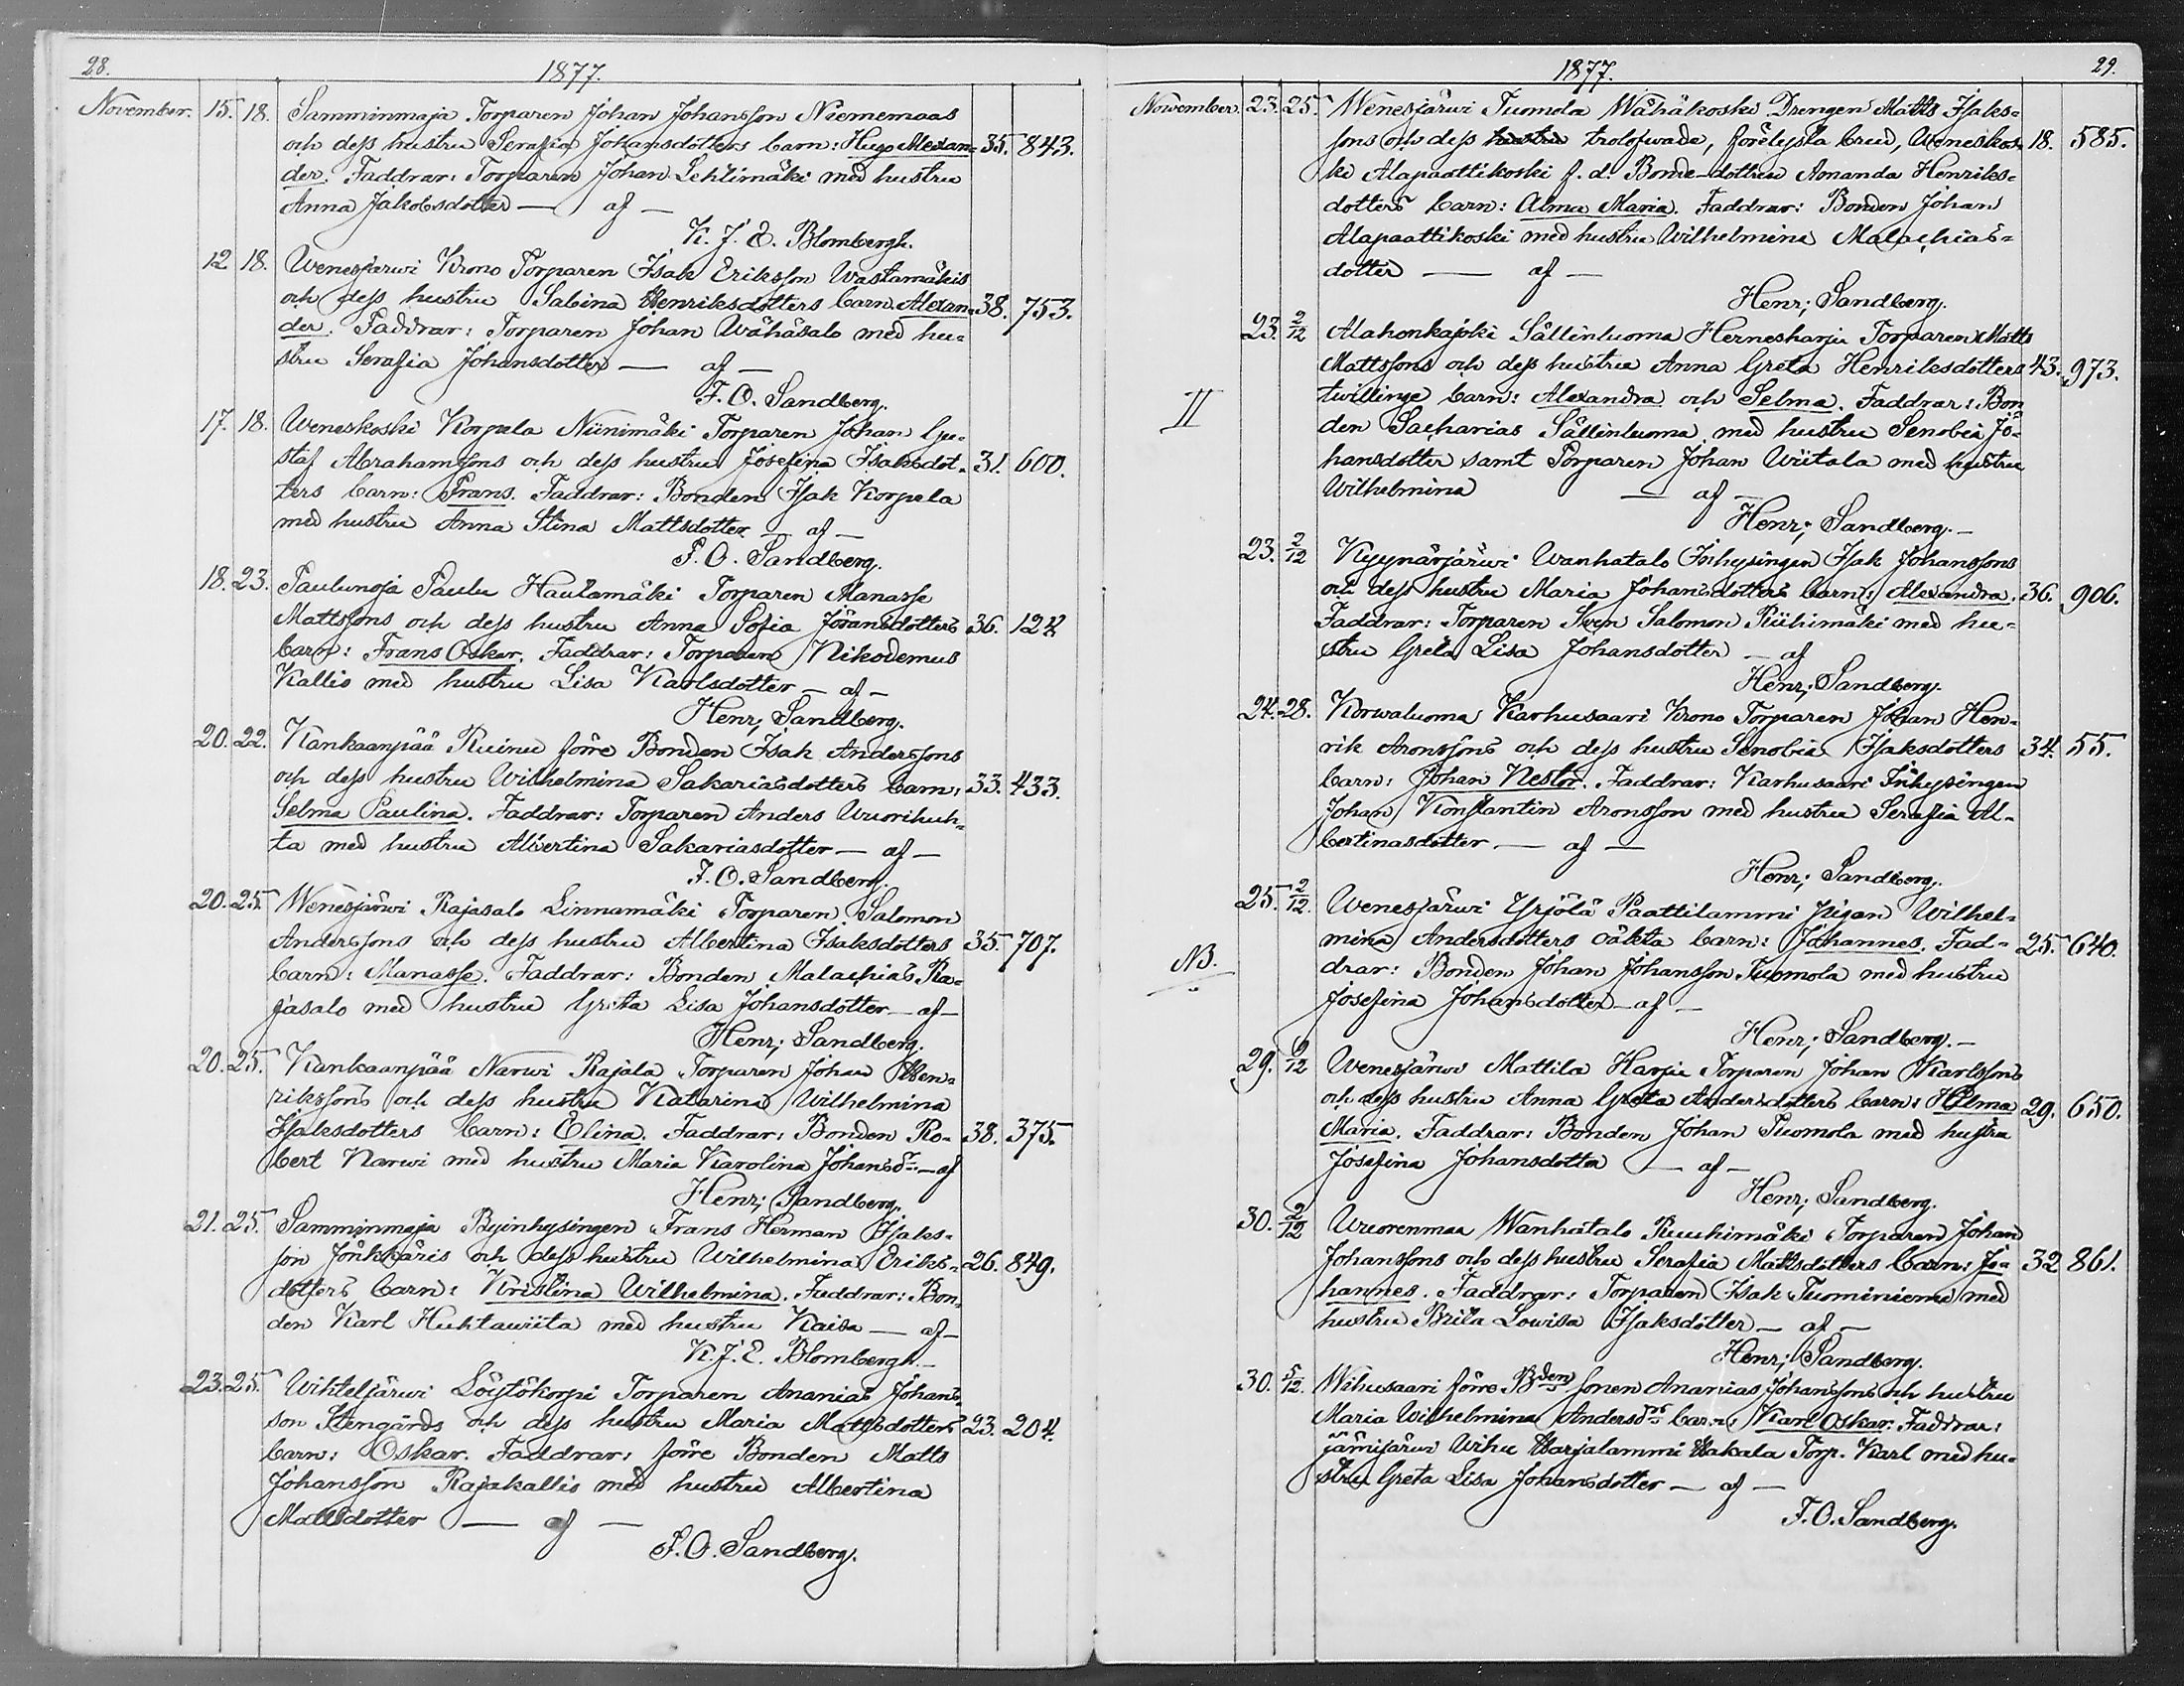 28. 1877.
November. 15. 18. Samminmaja Torparen Johan Johansson Niememaas
och dess hustru Serafia Johansdotters barn: Hugo Alexan= 35. 843.
der. Faddrar: Torparen Johan Lehtimäki med hustru
Anna Jakobsdotter — af —
K. J. E. Blombergh.
12 18. Wenesjärwi Krono Torparen Isak Eriksson Wastamäkis
och dess hustru Sabina Henriksdotters barn: Alexan= 38. 753.
der. Faddrar: Torparen Johan Wähäsalo med hu=
stru Serafia Johansdotter — af —
F. O. Sandberg.
17. 18. Weneskoski Korpela Niinimäki Torparen Johan Gu=
staf Abrahamssons och dess hustru Josefina Isaksdot= 31. 600.
ters barn: Frans. Faddrar: Bonden Isak Korpela
med hustru Anna Stina Mattsdotter — af —
F. O. Sandberg.
18. 23. Paulunoja Paulu Hautamäki Torparen Manasse
Mattssons och dess hustru Anna Sofia Jöransdotters 36. 124
barn: Frans Oskar. Faddrar: Torparen Nikodemus
Kallio med hustru Lisa Karlsdotter — af —
Henr; Sandberg.
20. 22. Kankaanpää Ruinu förre Bonden Isak Anderssons
och dess hustru Wilhelmina Sakariasdotters barn: 33. 433.
Selma Paulina. Faddrar: Torparen Anders Wuorihuh=
ta med hustru Albertina Sakariasdotter — af —
F. O. Sandberg.
20. 25. Wenesjärwi Rajasalo Linnamäki Torparen Salomon
Anderssons och dess hustru Albertina Isaksdotters 35. 707.
barn: Manasse. Faddrar: Bonden Malachias Ra=
jasalo med hustru Greta Lisa Johansdotter — af —
Henr; Sandberg.
20. 25. Kankaanpää Narwi Rajala Torparen Johan Hen=
rikssons och dess hustru Katarina Wilhelmina
Isaksdotters barn: Elina. Faddrar: Bonden Ro= 38. 375.
bert Narwi med hustru Maria Karolina Johansdr — af
Henr; Sandberg.
21. 25. Samminmaja Byinhysingen Frans Herman Isaks=
son Jönkkäris och dess hustru Wilhelmina Eriks= 26. 849.
dotters barn: Kristina Wilhelmina. Faddrar: Bon=
den Karl Huhtawiita med hustru Kaisa — af —
K. J. E. Blombergh. —
23. 25. Wihteljärwi Löytökorpi Torparen Ananias Johans=
son Stengårds och dess hustru Maria Mattsdotters 23. 204.
barn: Oskar. Faddrar: förre Bonden Matts
Johansson Rajakallio med hustru Albertina
Mattsdotter — af —
F. O. Sandberg.
1877. 29.
November. 23. 25. Wenesjärwi Tuomola Wähäkoski Drengen Matts Isaks=
sons och dess hustru trolofwade, förelysta brud, Weneskos= 18. 585.
ki Alapaattikoski f. d. Bonde-dottren Amanda Henriks=
dotters barn: Alma Maria. Faddrar: Bonden Johan
Alapaattikoski med hustru Wilhelmina Malachias=
dotter — af —
Henr; Sandberg.
23. 2/12 Alahonkajoki Sällinluoma Hernesharju Torparen Matts
Mattssons och dess hustru Anna Greta Henriksdotters 43. 973.
II twillinge barn: Alexandra och Selma. Faddrar: Bon
den Sacharias Sällinluoma med hustru Senobia Jo=
hansdotter samt Torparen Johan Wiitala med hustru
Wilhelmina — af —
Henr; Sandberg. —
23. 2/12 Kyynärjärwi Wanhatalo Inhysingen Isak Johanssons
och dess hustru Maria Johansdotters barn: Alexandra. 36. 906.
Faddrar: Torparen Sven Salomon Riihimäki med hu=
stru Greta Lisa Johansdotter — af
Henr; Sandberg.
24. 28. Korwaluoma Karhusaari Krono Torparen Johan Hen=
rik Aronssons och dess hustru Senobia Isaksdotters 34. 55.
barn: Johan Nestor. Faddrar: Karhusaari Inhysingen
Johan Konstantin Aronsson med hustru Serafia Al=
bertinasdotter — af —
Henr; Sandberg.
25. 2/12. Wenesjärwi Yrjölä Paattilammi Pigan Wilhel=
mina Andersdotters oäkta barn: Johannes. Fad= 25. 640.
NB. drar: Bonden Johan Johansson Tuomola med hustru
Josefina Johansdotter — af —
Henr; Sandberg. —
29. 9/12 Wenesjärwi Mattila Harju Torparen Johan Karlssons
och dess hustru Anna Greta Andersdotters barn: Hilma 29. 650.
Maria. Faddrar: Bonden Johan Tuomola med hustru
Josefina Johansdotter — af —
Henr; Sandberg.
30. 2/12 Wuorenmaa Wanhatalo Ruuhimäki Torparen Johan
Johanssons och dess hustru Serafia Mattsdotters barn: Jo= 32 861.
hannes. Faddrar: Torparen Isak Tuominiemi med
hustru Brita Lowisa Isaksdotter — af —
Henr; Sandberg.
30. 5/12. Wihusaari förre Bden sonen Ananias Johanssons och hustru
Maria Wilhelmina Andersdrs barn: Karl Oskar. Faddrar:
Jämijärwi Wihu Harjalammi Hakala Torp. Karl med hu=
stru Greta Lisa Johansdotter — af —
F. O. Sandberg.